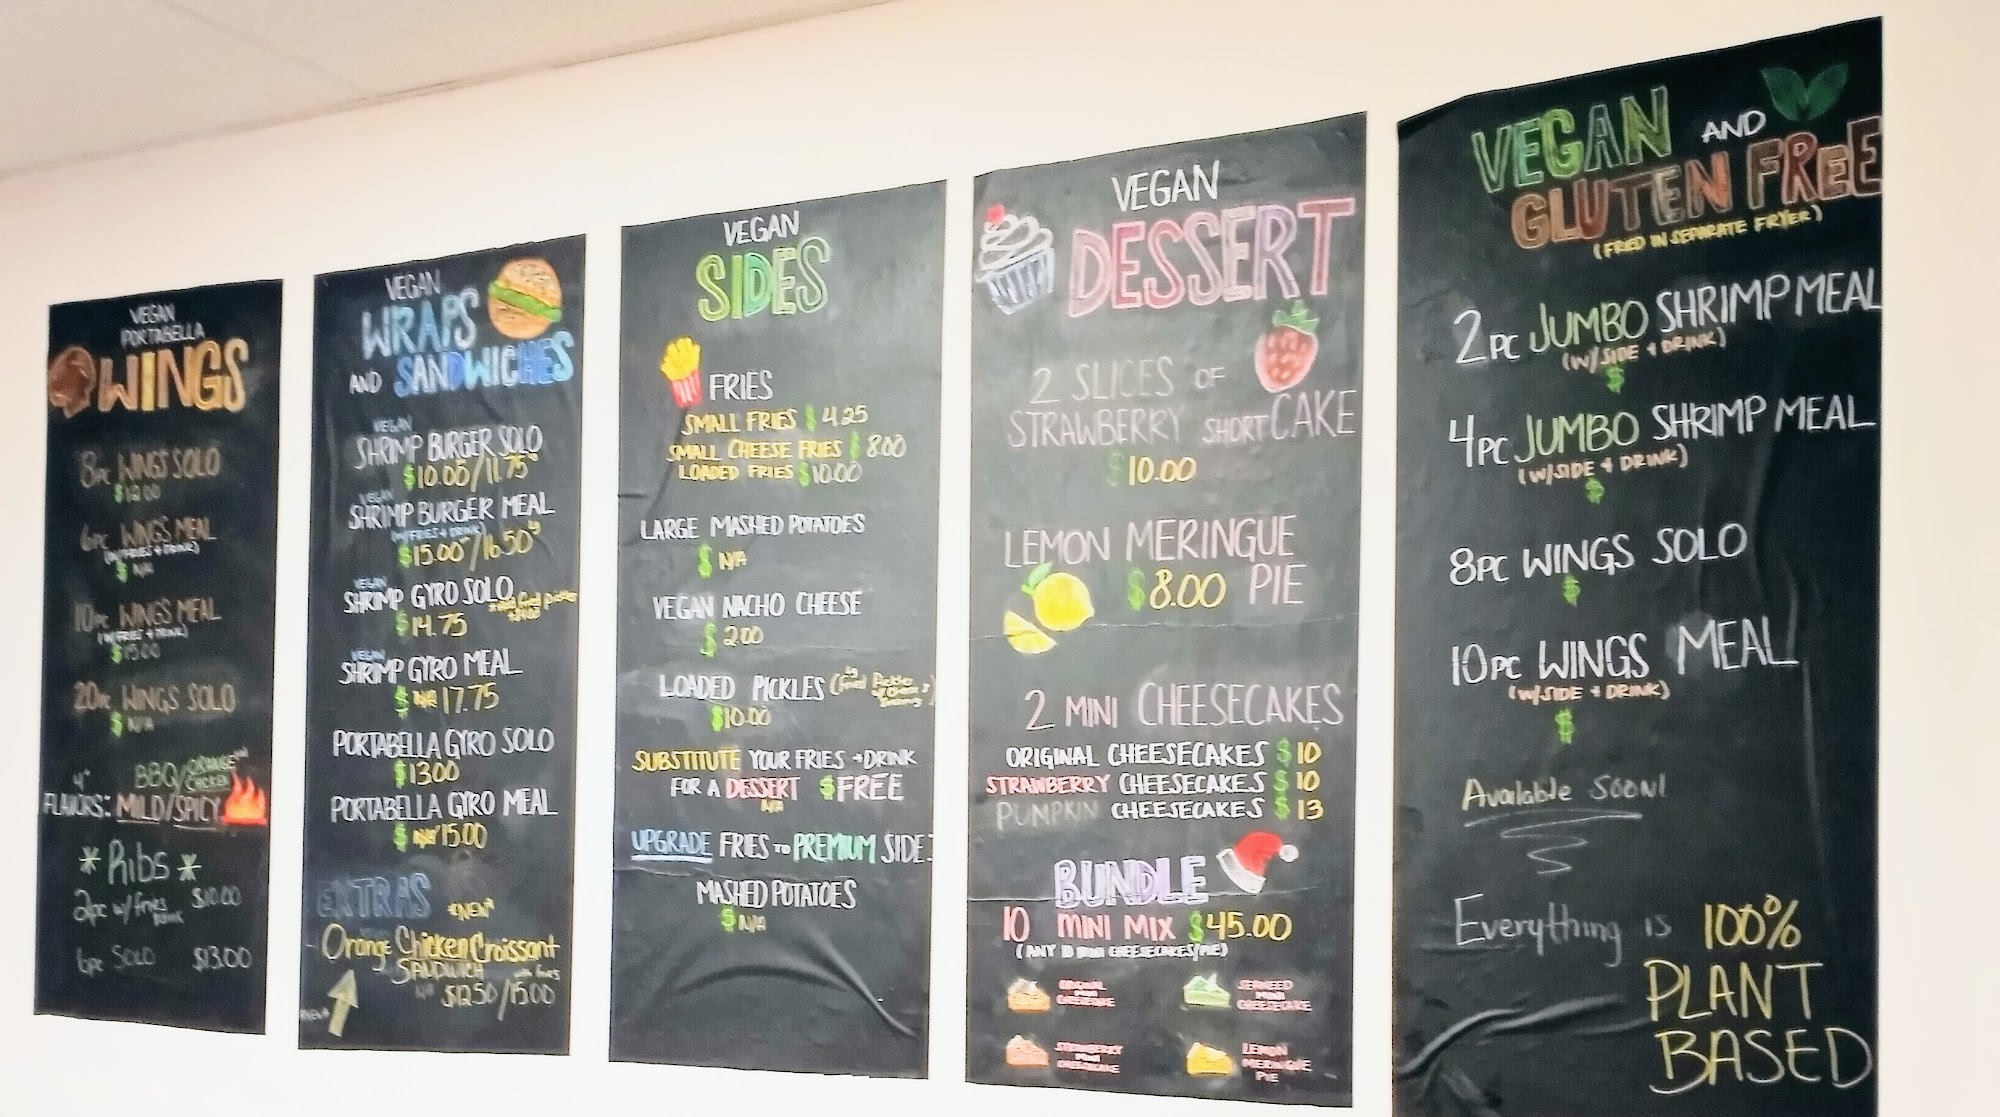 VEGAN
PORTABELLA
WINGS
8pc WINGS SOLO
6pc WINGS MEAL
(W/FRIES + DRINK)
$ N/A
10pc WINGS MEAL
(W/FRIES + DRINK)
$15.00
20pc WINGS SOLO
$ N/A
BBQ/ORANGE
CHICKEN
FLAVORS: MILD/SPICY
* Ribs *
2pc w/fries $10.00
drink
6pc SOLO $13.00
VEGAN
WRAPS
AND SANDWICHES
VEGAN
SHRIMP BURGER SOLO
$10.05/11.75
VEGAN
SHRIMP BURGER MEAL
(W/FRIES + DRINK)
$15.00/16.50
VEGAN
SHRIMP GYRO SOLO
$14.75
VEGAN
SHRIMP GYRO MEAL
$ N/A 17.75
PORTABELLA GYRO SOLO
$1300
PORTABELLA GYRO MEAL
$ N/A 15.00
EXTRAS *NEW*
Orange Chicken Croissant
SANDWICH with fries
$12.50/15.00
VEGAN
SIDES
FRIES
SMALL FRIES $ 4.25
SMALL CHEESE FRIES $ 8.00
LOADED FRIES $10.00
LARGE MASHED POTATOES
$ N/A
VEGAN NACHO CHEESE
$ 2.00
LOADED PICKLES
$10.00
SUBSTITUTE YOUR FRIES + DRINK
FOR A DESSERT $FREE
N/A
UPGRADE FRIES TO PREMIUM SIDE:
MASHED POTATOES
$ N/A
VEGAN
DESSERT
2 SLICES OF
STRAWBERRY SHORTCAKE
$10.00
LEMON MERINGUE
$8.00 PIE
2 MINI CHEESECAKES
ORIGINAL CHEESECAKES $10
STRAWBERRY CHEESECAKES $10
PUMPKIN CHEESECAKES $13
BUNDLE
10 MINI MIX $45.00
(ANY 10 MINI CHEESECAKES/PIE)
ORIGINAL
MINI
CHEESECAKE
MINI
CHEESECAKE
STRAWBERRY
MINI
CHEESECAKE
LEMON
MERINGUE
PIE
VEGAN AND
GLUTEN FREE
(FRIED IN SEPARATE FRYER)
2PC JUMBO SHRIMP MEAL
(W/SIDE + DRINK)
$
4PC JUMBO SHRIMP MEAL
(W/SIDE + DRINK)
$
8PC WINGS SOLO
$
10PC WINGS MEAL
(W/SIDE + DRINK)
$
Available SOON!
Everything is 100%
PLANT
BASED